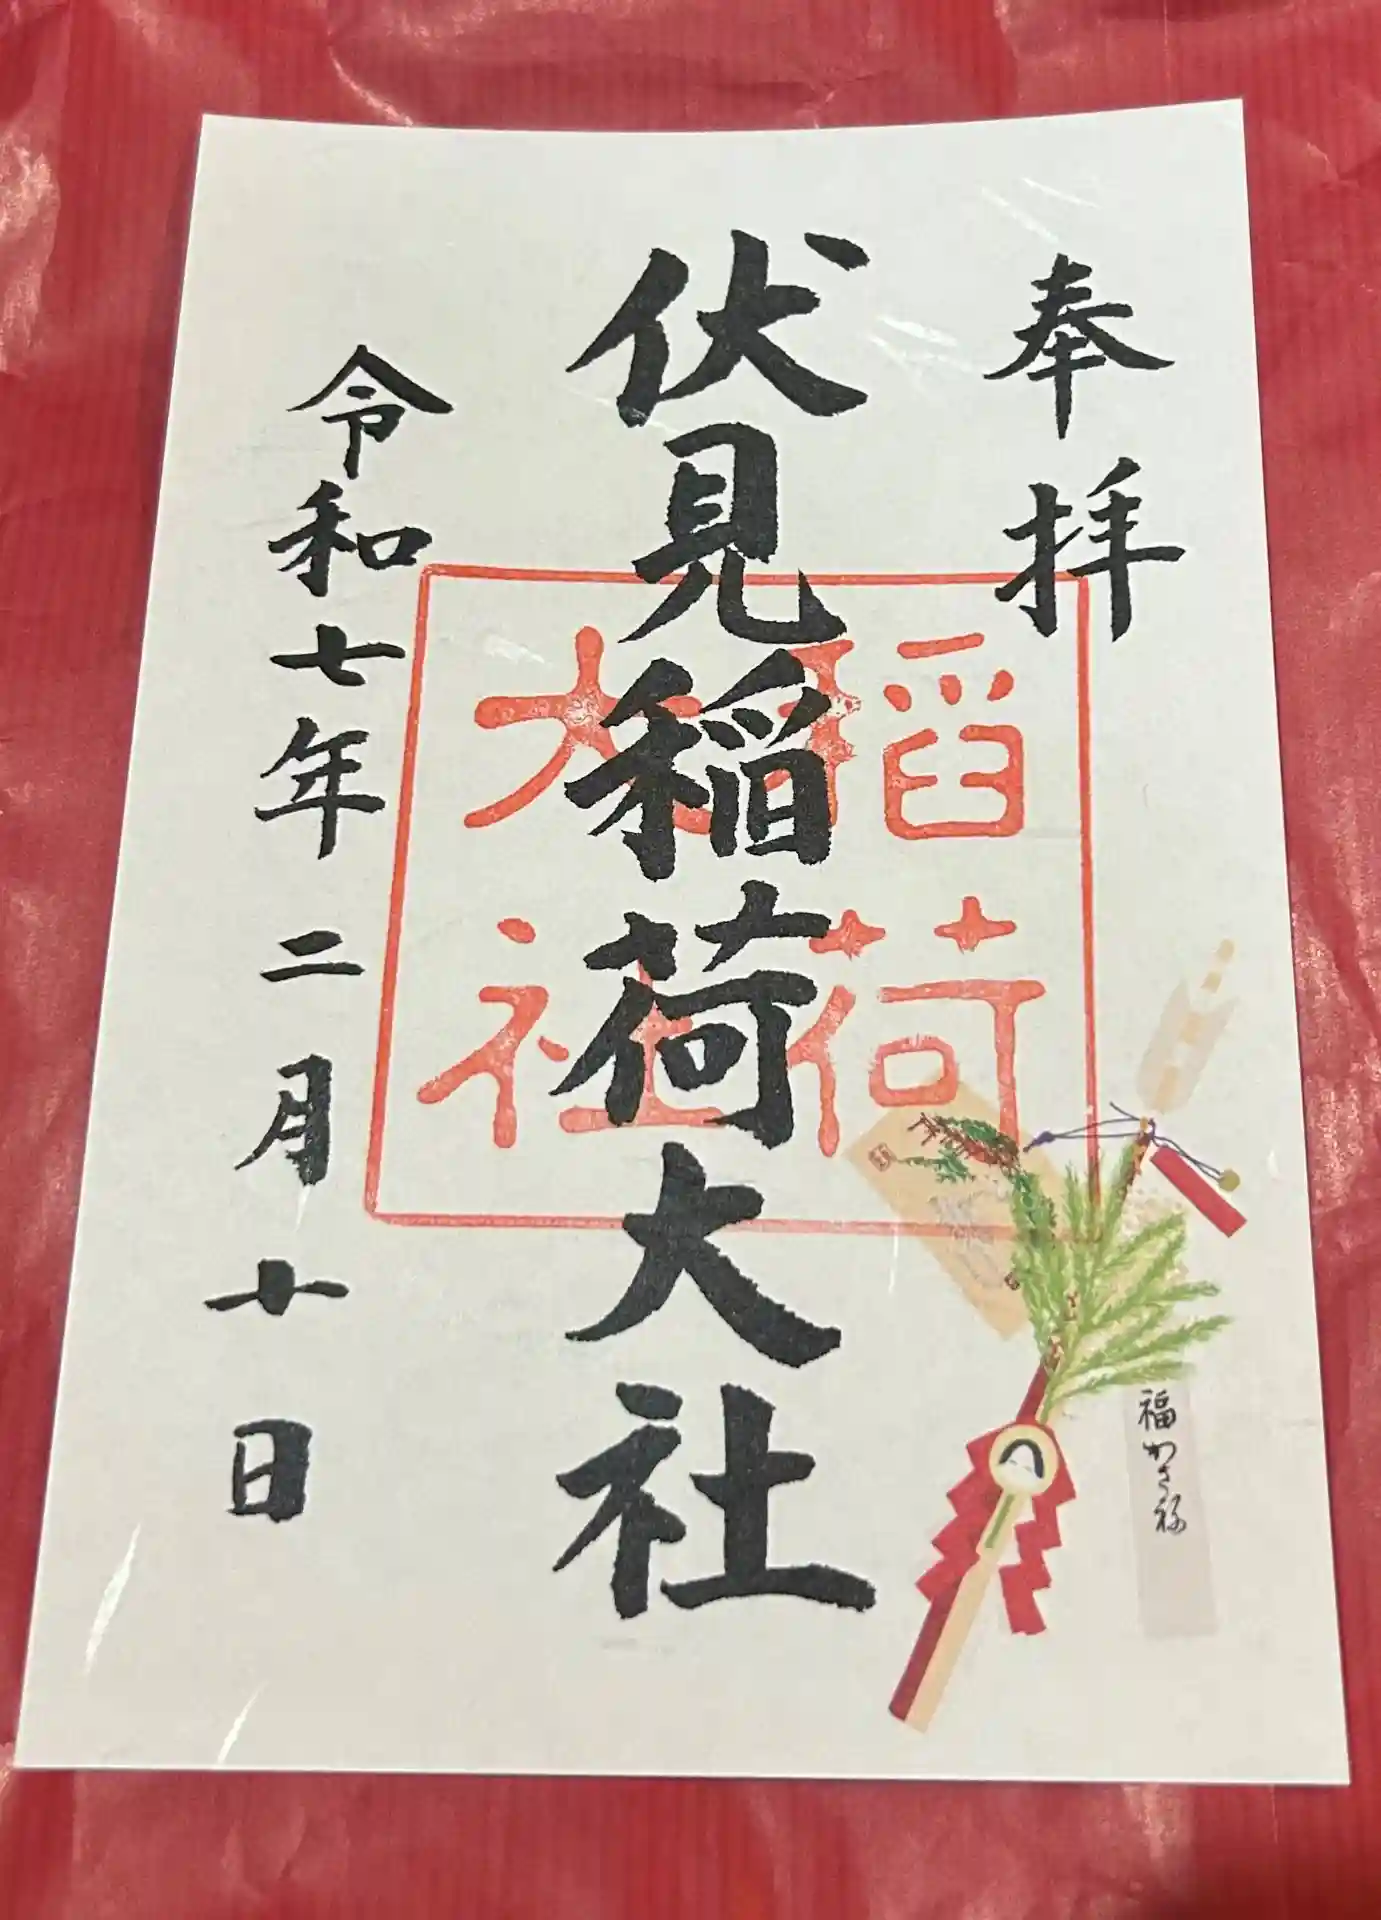 奉拝
伏見稲荷大社
令和七年二月十日
稲荷
大社
福かさね